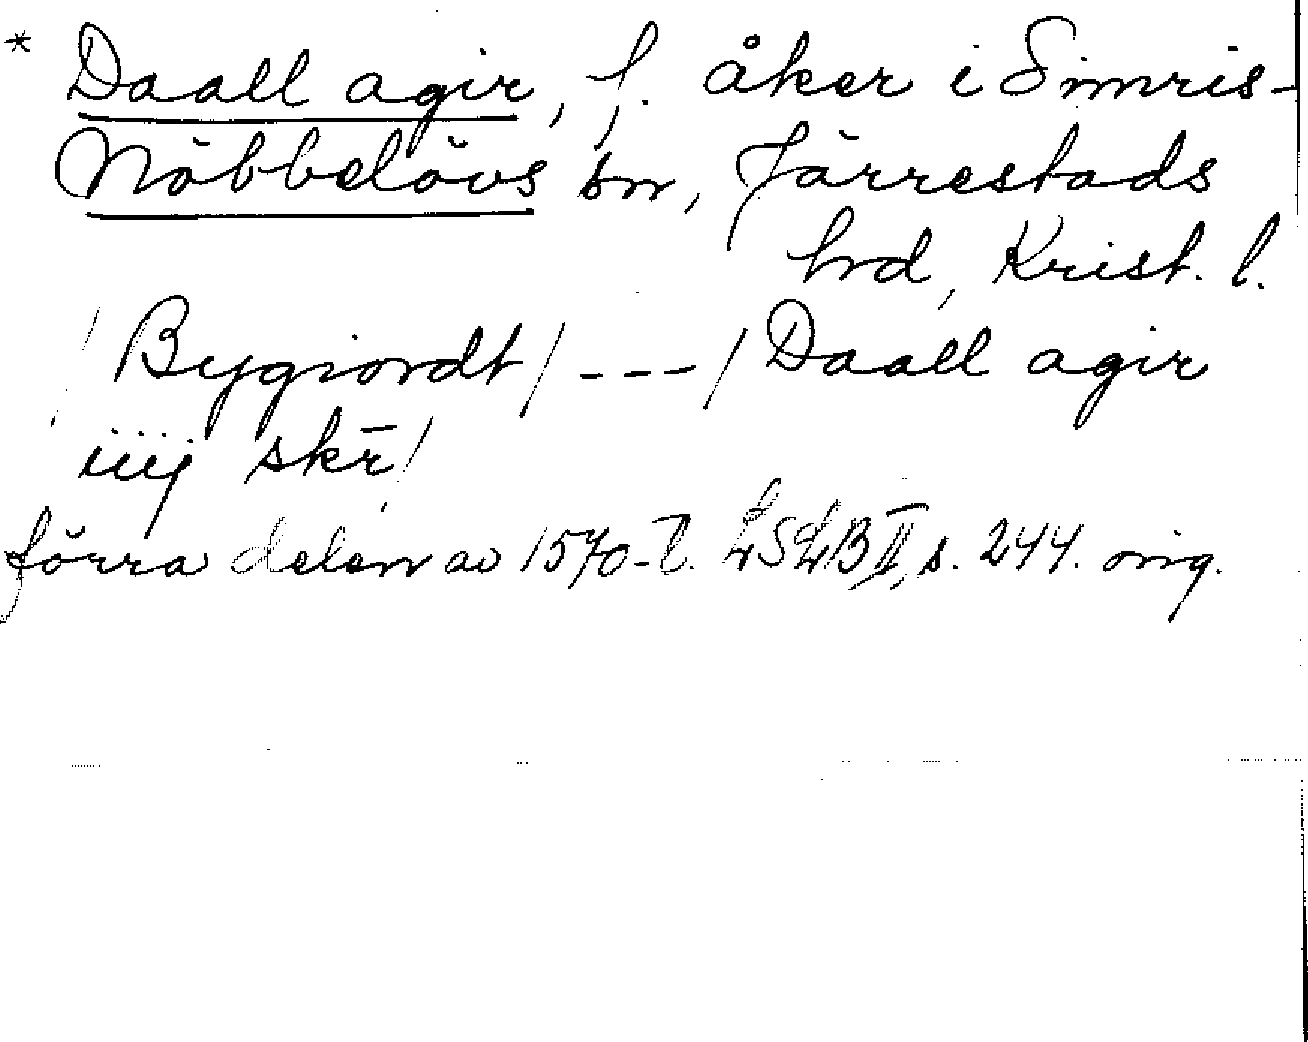 * Daall agir, f. åker i Simris-
Nöbbelövs sn, Järrestads
hrd, Krist. l.
/ Bygiordt / --- / Daall agir
iiij skr̄ /
förra delen av 1570-t. LSLB II, s. 244. orig.